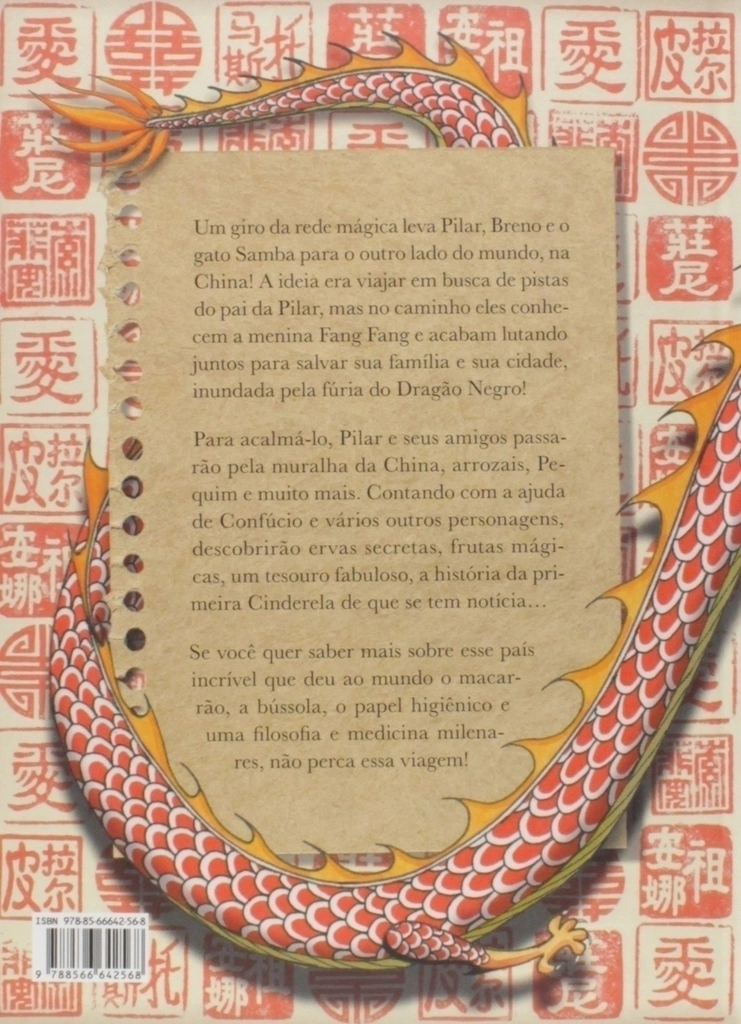 马斯托
莊
祖安
拉尔皮
莊尼
莊尼
Um giro da rede mágica leva Pilar, Breno e o
gato Samba para o outro lado do mundo, na
China! A ideia era viajar em busca de pistas
do pai da Pilar, mas no caminho eles conhe-
cem a menina Fang Fang e acabam lutando
juntos para salvar sua família e sua cidade,
inundada pela fúria do Dragão Negro!
Para acalmá-lo, Pilar e seus amigos passa-
rão pela muralha da China, arrozais, Pe-
quim e muito mais. Contando com a ajuda
de Confúcio e vários outros personagens,
descobrirão ervas secretas, frutas mági-
cas, um tesouro fabuloso, a história da pri-
meira Cinderela de que se tem notícia...
Se você quer saber mais sobre esse país
incrível que deu ao mundo o macar-
rão, a bússola, o papel higiênico e
uma filosofia e medicina milena-
res, não perca essa viagem!
拉尔皮
祖安娜
拉尔皮
祖安娜
ISBN 978-85-66642-56-8
9 788566 642568
斯托
祖安娜